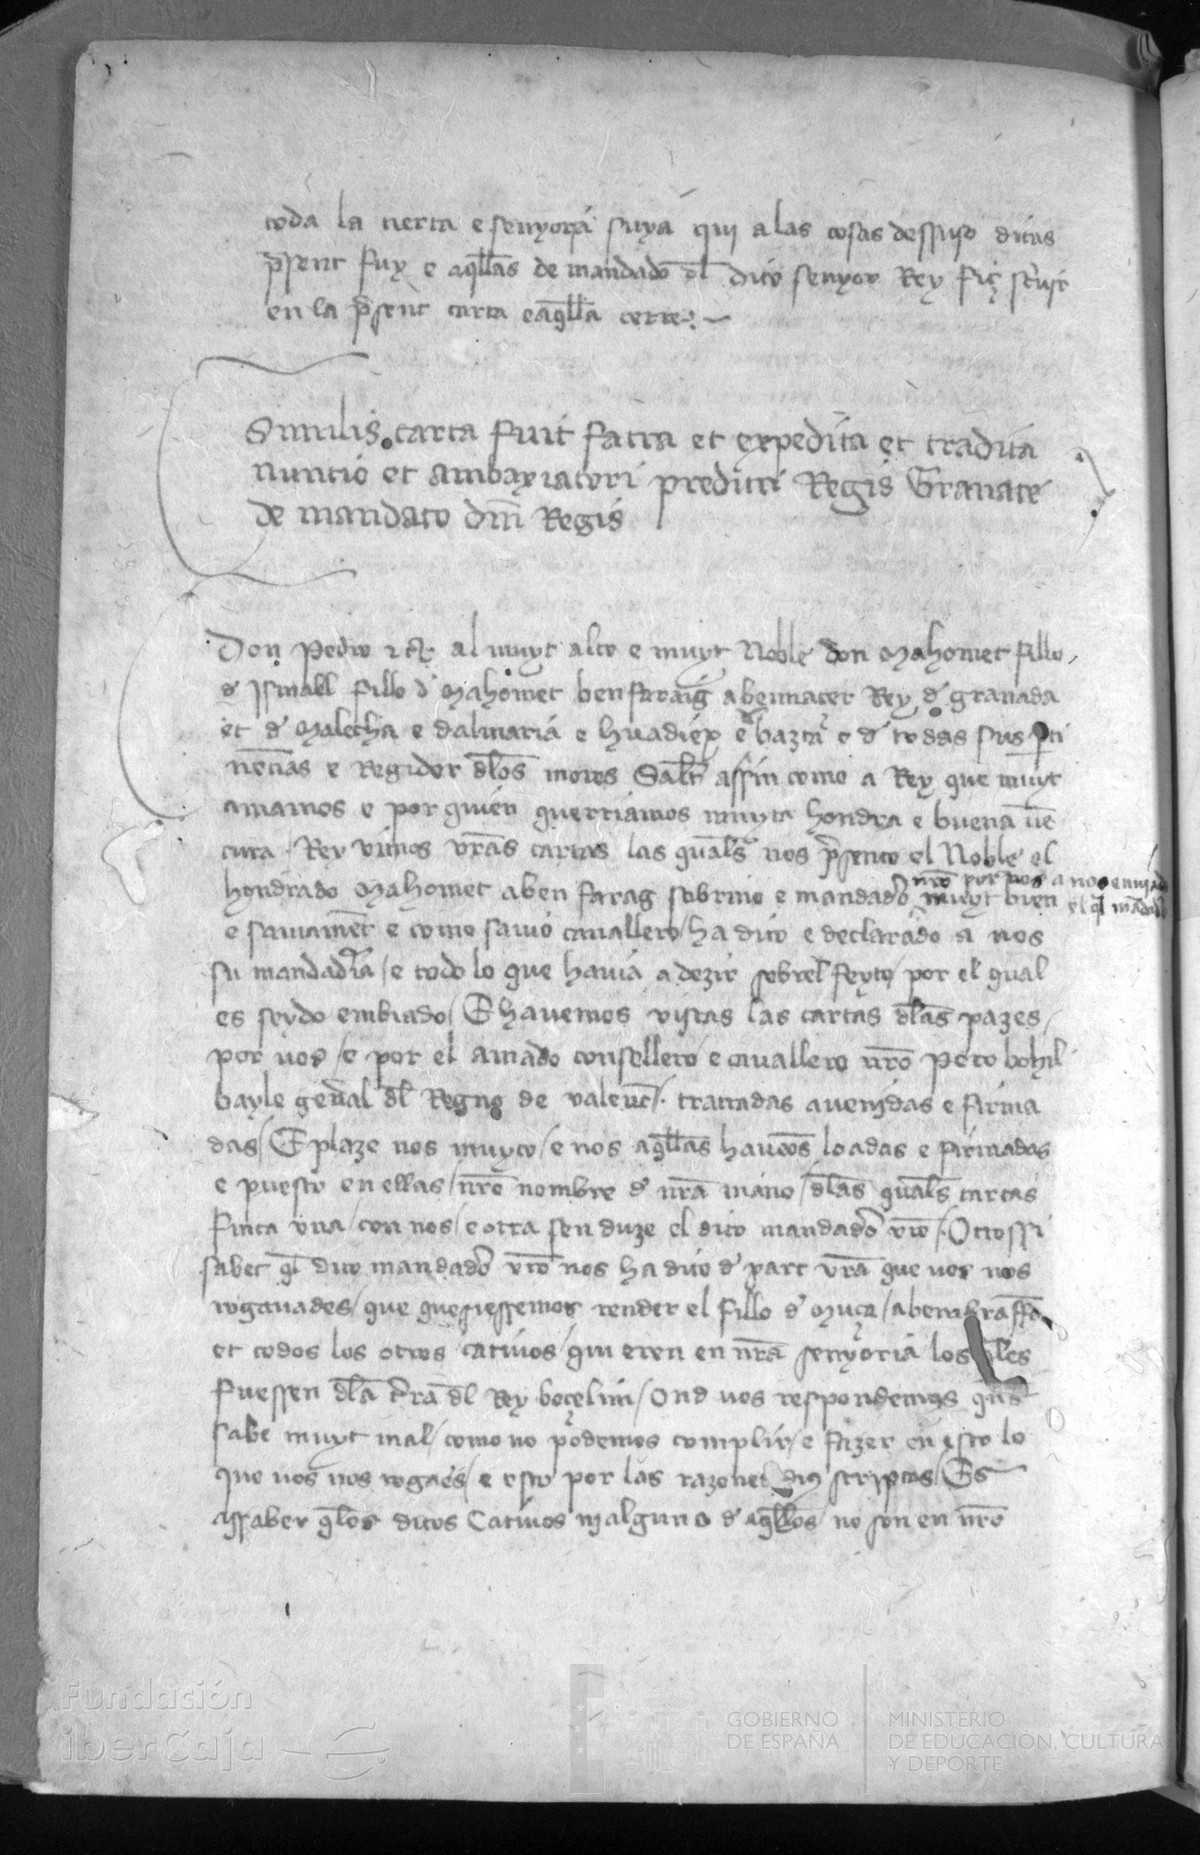 toda la tierra e senyoria suya qui a las cosas dessuso ditas
p̃sent fuy e aq̃llas de mandado dl̃ dito senyor Rey fiç sc̃uir
en la p̃sent carta e aq̃lla cerre
Similis carta fuit facta et expedita et tradita
nuncio et ambaxiatori predicti Regis Granate
de mandato dn̄i Regis
Don Pedro etc̃ al muyt alto e muyt Noble don Mahomet fillo
d̃ Ismael fillo d̃ Mahomet ben faraig abennacer Rey d̃ granada
et d̃ Malecha e dalmaria e huadiex e bazta e d̃ todas sus p̱ti
nẽcias e Regidor dl̃os moros Salt̃ assin como a Rey que muyt
amamos e por quien querriamos muyta hondra e buena uẽ
tura Rey vimos vr̃as cartas las quals̃ nos p̃sento el Noble el
hondrado Mahomet aben farag sobrino e mandadõ muyt bien
nr̃o por vos a nos enviado
el q̃l mandado
e sauiamẽt e como sauio cauallero / ha dito e declarado a nos
su mandadr̃ia / e todo lo que hauia a dezir sobrel feyto / por el qual
es seydo embiado / E hauemos vistas las cartas dl̃as pazes /
por uos / e por el amado consellero e cauallero nr̃o Pero bohil
bayle gen̄al dl̃ Regno de valenc̃ / tractadas auenidas e firma
das / E plaze nos muyto / e nos aq̃llas hauem̃os loadas e firmadas
e puesto en ellas / nr̃o nombre d̃ nr̃a mano / dl̃as quals̃ cartas
finca vna / con nos / e otra sen duze el dito mandadõ vr̃o / Otrossi
sabet q̃l dito mandadõ vr̃o nos ha dito d̃ part vr̃a que uos nos
rogauades / que quesiessemos render el fillo d̃ Muça / abenbraffẽ
et todos los otros catiuos / qui eren en nr̃a senyoria los q̃les
fuessen dl̃a t̃ra dl̃ Rey boçelim / Ond uos respondemos que nos
sabe muyt mal / como no podemos complir / e fazer en esto lo
que uos nos rogaes / e esto por las razones dius scriptas / Es
assaber q̃los ditos Catiuos ni alguno d̃ aq̃llos / no son en nr̃o
Fundación
iberCaja
GOBIERNO
DE ESPAÑA
MINISTERIO
DE EDUCACIÓN, CULTURA
Y DEPORTE